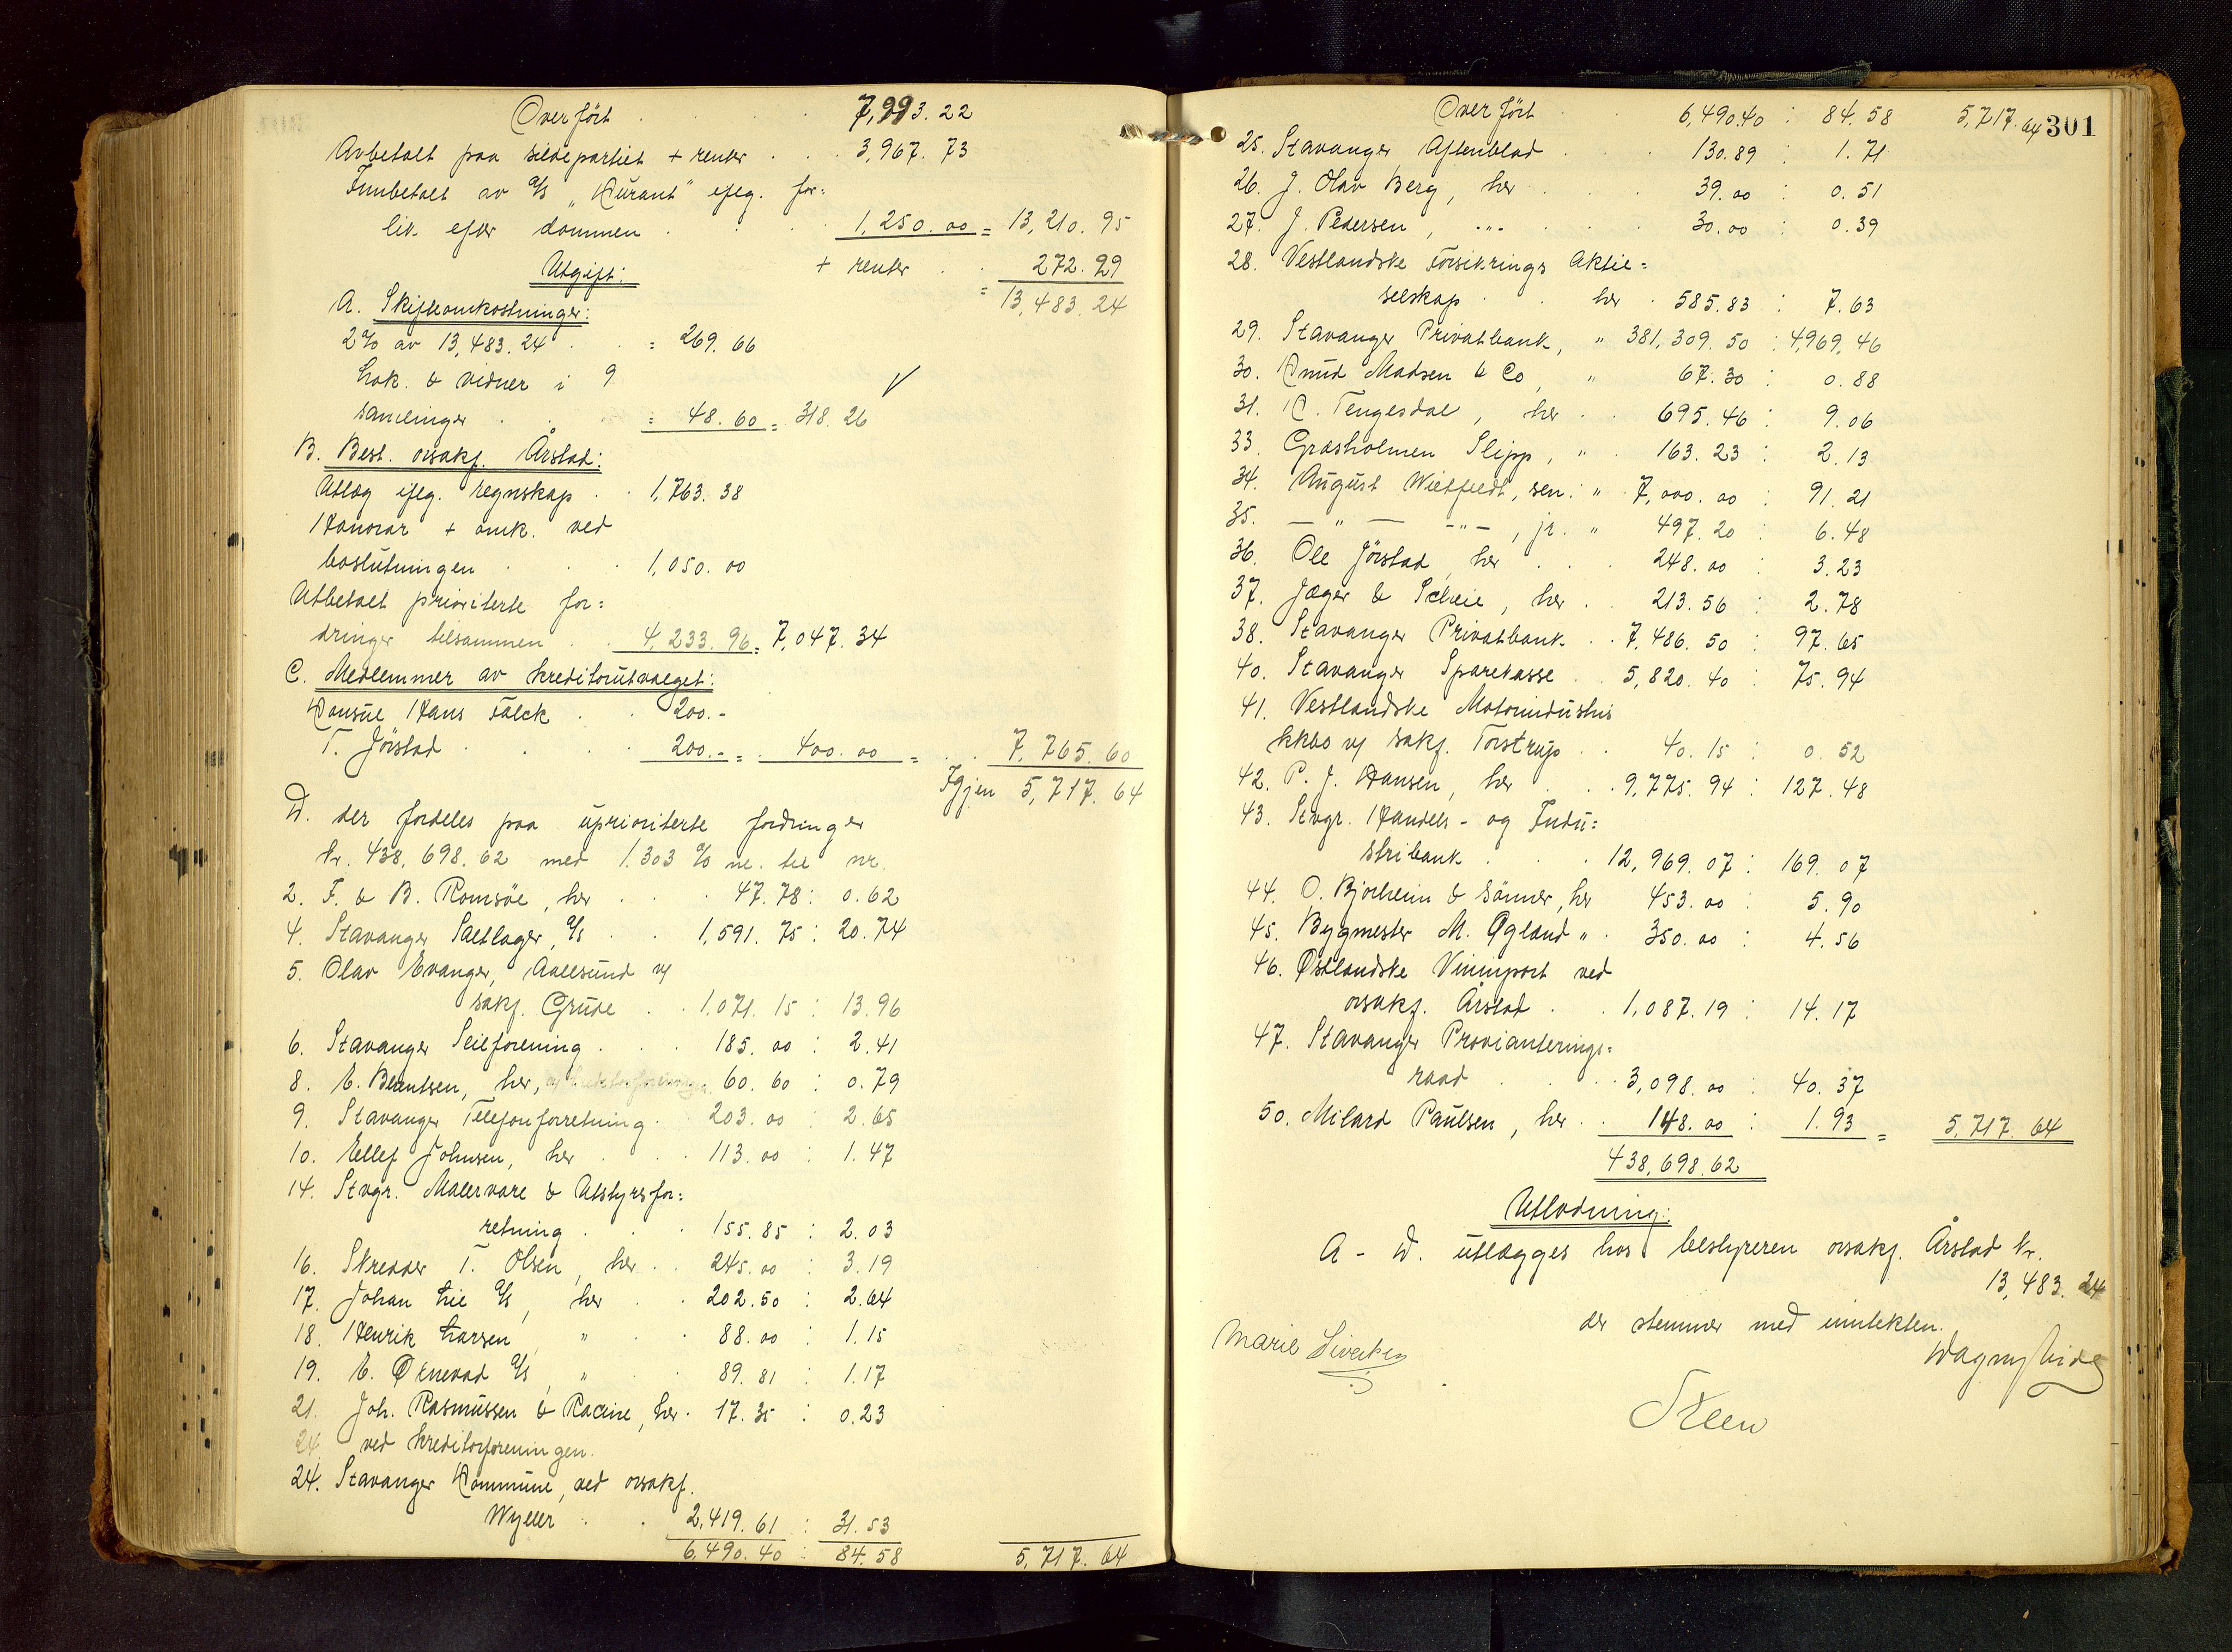 Overført . . . 7,993.22
Avbetalt paa sildepartiet + renter . . . 3,967.73
Innbetalt av A/S "Kurant" iflg. for=
lik efter dommen . . . 1,250.00 = 13,210.95
Utgift: + renter . . 272.29
= 13,483.24
A. Skifteomkostninger:
2% av 13,483.24 . . = 269.66
Lok. & vidner i 9
samlinger . . = 48.60 = 318.26
B. Best. orsakf. Årstad:
Utlæg iflg. regnskap . . 1,763.38
Honorar + omk. ved
boslutningen . . . 1,050.00
Utbetalt prioriterte for=
dringer tilsammen . . 4,233.96 = 7,047.34
C. Medlemmer av kreditorutvalget:
Konsul Hans Falck . . 200.-
T. Jørstad . . . 200.- = 400.00 = . . 7,765.60
Igjen 5,717.64
D. der fordeles paa upriorterte fordringer
kr. 438,698.62 med 1.303 % nl. til nr.
2. F. & B. Romsøe, her . . . 47.78 : 0.62
4. Stavanger Saltlager, A/S . . 1,591.75 : 20.74
5. Olav Evanger, Aalesund v/
sakf. Grude . . 1,071.15 : 13.96
6. Stavanger Seilforening . . . 185.00 : 2.41
8. E. Berntsen, her, v/ kreditorforeningen 60.60 : 0.79
9. Stavanger Telefonforretning . 203.00 : 2.65
10. Ellef Johnsen, her . . . 113.00 : 1.47
14. Stvgr. Malervare & Utstyrsfor=
retning . . . 155.85 : 2.03
16. Skredder T. Olsen, her . . 245.00 : 3.19
17. Johan Lie A/S, her . . 202.50 : 2.64
18. Henrik Larsen, " . . 88.00 : 1.15
19. E. Ørnevad A/S, " . . 89.81 : 1.17
21. Joh. Rasmussen & Racine, her . 17.35 : 0.23
24 ved kreditorforeningen.
24. Stavanger Kommune, ved orsakf.
Wyller . . 2,419.61 : 31.53
6,490.40 : 84.58 5,717.64
301
Overført . . 6,490.40 : 84.58 5,717.64
25. Stavanger Aftenblad . . . 130.89 : 1.71
26. J. Olav Berg, her . . . 39.00 : 0.51
27. J. Pedersen, -"- . . . 30.00 : 0.39
28. Vestlandske Forsikrings Aktie=
selskap . . her . 585.83 : 7.63
29. Stavanger Privatbank, " 381,309.50 : 4,969.46
30. Knud Madsen & Co, " 67.30 : 0.88
31. K. Tengesdal, her . . 695.46 : 9.06
33. Grasholmen Slipp, " . 163.23 : 2.13
34. August Wietfeldt, sen. " 7,000.00 : 91.21
35. — " — -"-, jr. " 497.20 : 6.48
36. Ole Jørstad, her . . . 248.00 : 3.23
37. Jæger & Scheie, her . . 213.56 : 2.78
38. Stavanger Privatbank . . 7,486.50 : 97.65
40. Stavanger Sparekasse . . 5,820.40 : 75.94
41. Vestlandske Motorindustris
kkbo v/ sakf. Torstrup . . 40.15 : 0.52
42. P. J. Hansen, her . . . 9,775.94 : 127.48
43. Stvgr. Handels- og Indu=
stribank . . . 12,969.07 : 169.07
44. O. Bjorheim & Sønner, her 453.00 : 5.90
45. Bygmester M. Øgland " . 350.00 : 4.56
46. Østlandske Vinimport ved
orsakf. Årstad . . 1,087.19 : 14.17
47. Stavanger Provianterings=
raad . . . 3,098.00 : 40.37
50. Milard Paulsen, her . . 148.00 : 1.93 = 5,717.64
438,698.62
Utlodning:
A - D. utlægges hos bestyreren orsakf. Årstad kr.
13,483.24
der stemmer med inntekten.
Marie Siverken Dagny Lid
Steen